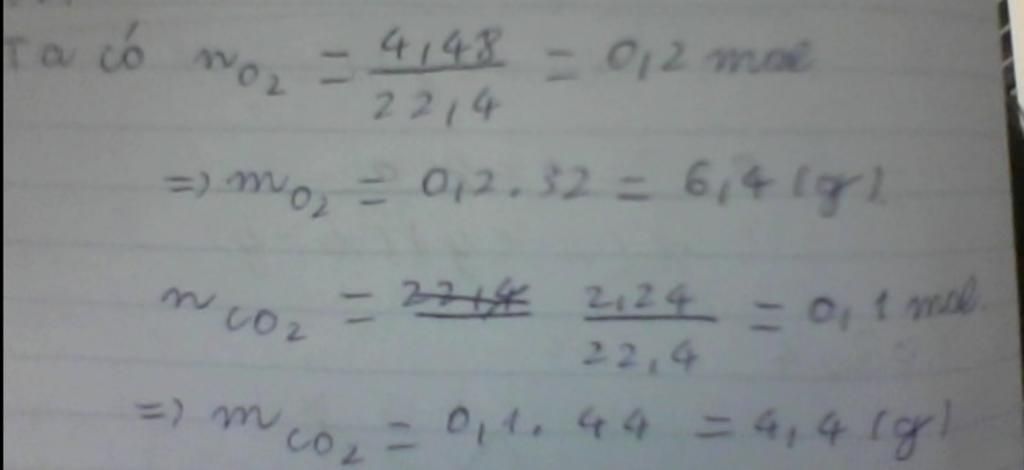 Ta có nO₂ = 4,48/22,4 = 0,2 mol
=> mO₂ = 0,2 . 32 = 6,4 (g)
nCO₂ = ~~22,4~~ 2,24/22,4 = 0,1 mol.
=> mCO₂ = 0,1 . 44 = 4,4 (g)